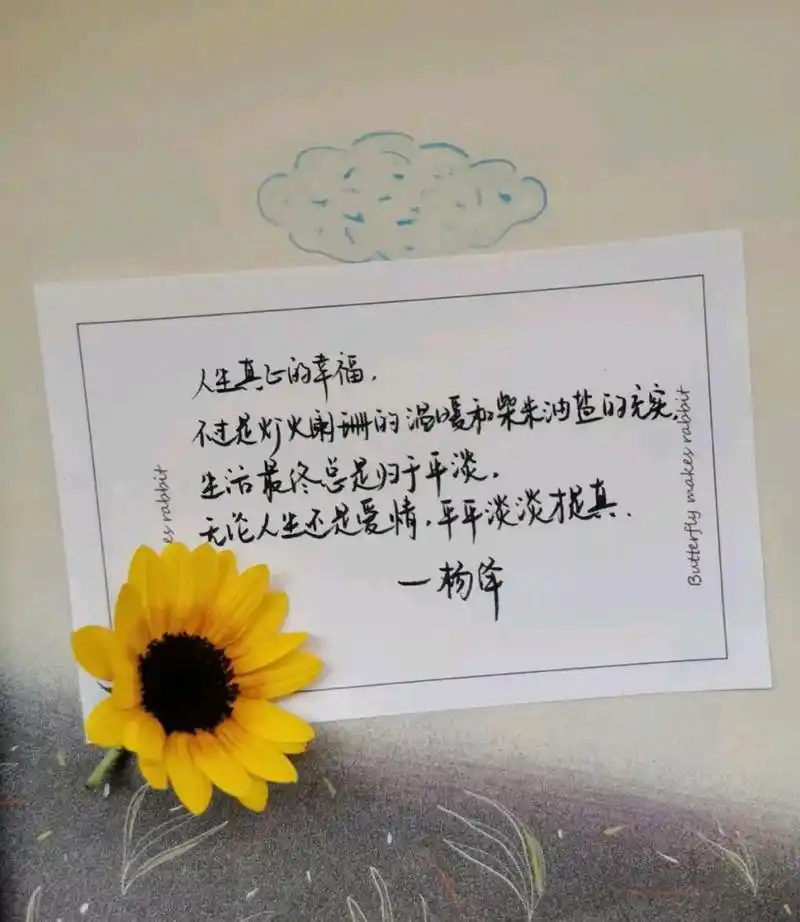 人生真正的幸福，
不过是灯火阑珊的温暖和柴米油盐的充实，
生活最终总是归于平淡，
无论人生还是爱情，平平淡淡才是真．
—杨泽
Butterfly makes rabbit
es rabbit